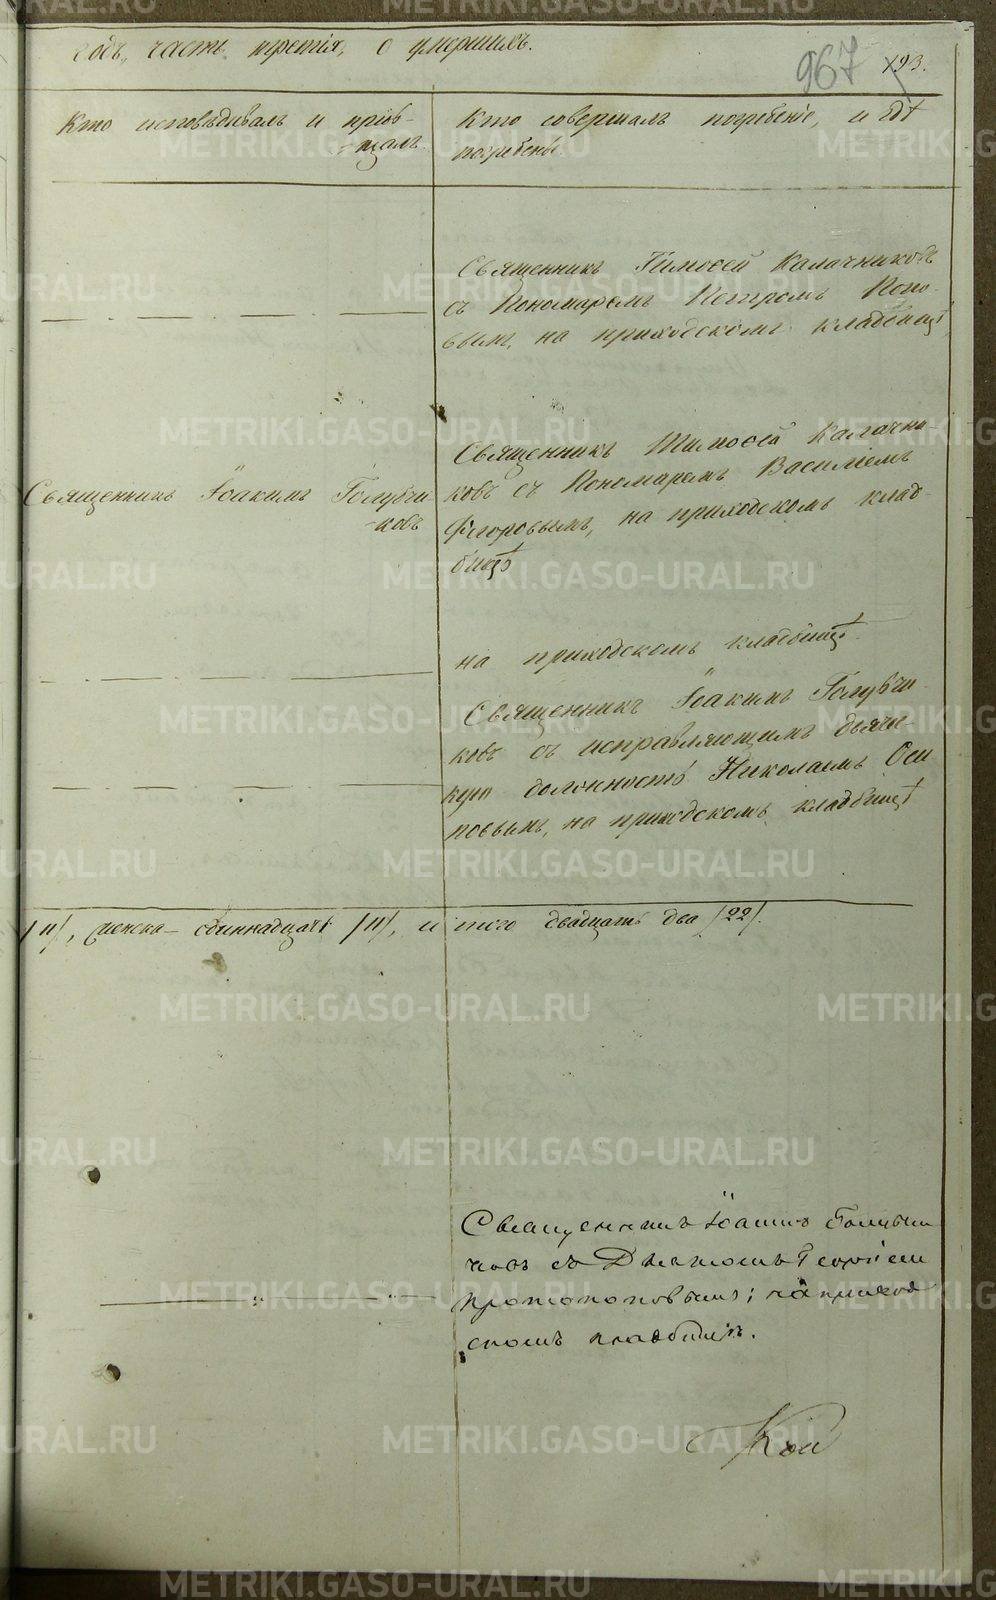 годъ, часть третія, о умершихъ.
967 193.
Кто исповѣдывалъ и пріоб-
щалъ.
Кто совершалъ погребеніе, и гдѣ
погребены.
Священникъ Тимоѳей Калачниковъ
съ Пономаремъ Петромъ Попо-
вымъ, на приходскомъ кладбищѣ
Священникъ Іоакимъ Голубчи-
ковъ
Священникъ Тимоѳей Калачни-
ковъ съ Пономаремъ Василіемъ
Ѳлоровымъ, на приходскомъ клад-
бищѣ
на приходскомъ кладбищѣ.
Священникъ Іоакимъ Голубчи-
ковъ съ исправляющимъ дьячи-
кую должность Николаемъ Оси
повымъ, на приходскомъ кладбищѣ
/11/, женска – одиннадцать /11/, и того двадцать два /22/.
Священникъ Іоакимъ Голубчи
ковъ съ Дьякономъ Георгіем
Протопоповымъ; на приход
скомъ кладбищѣ.
METRIKI.GASO-URAL.RU